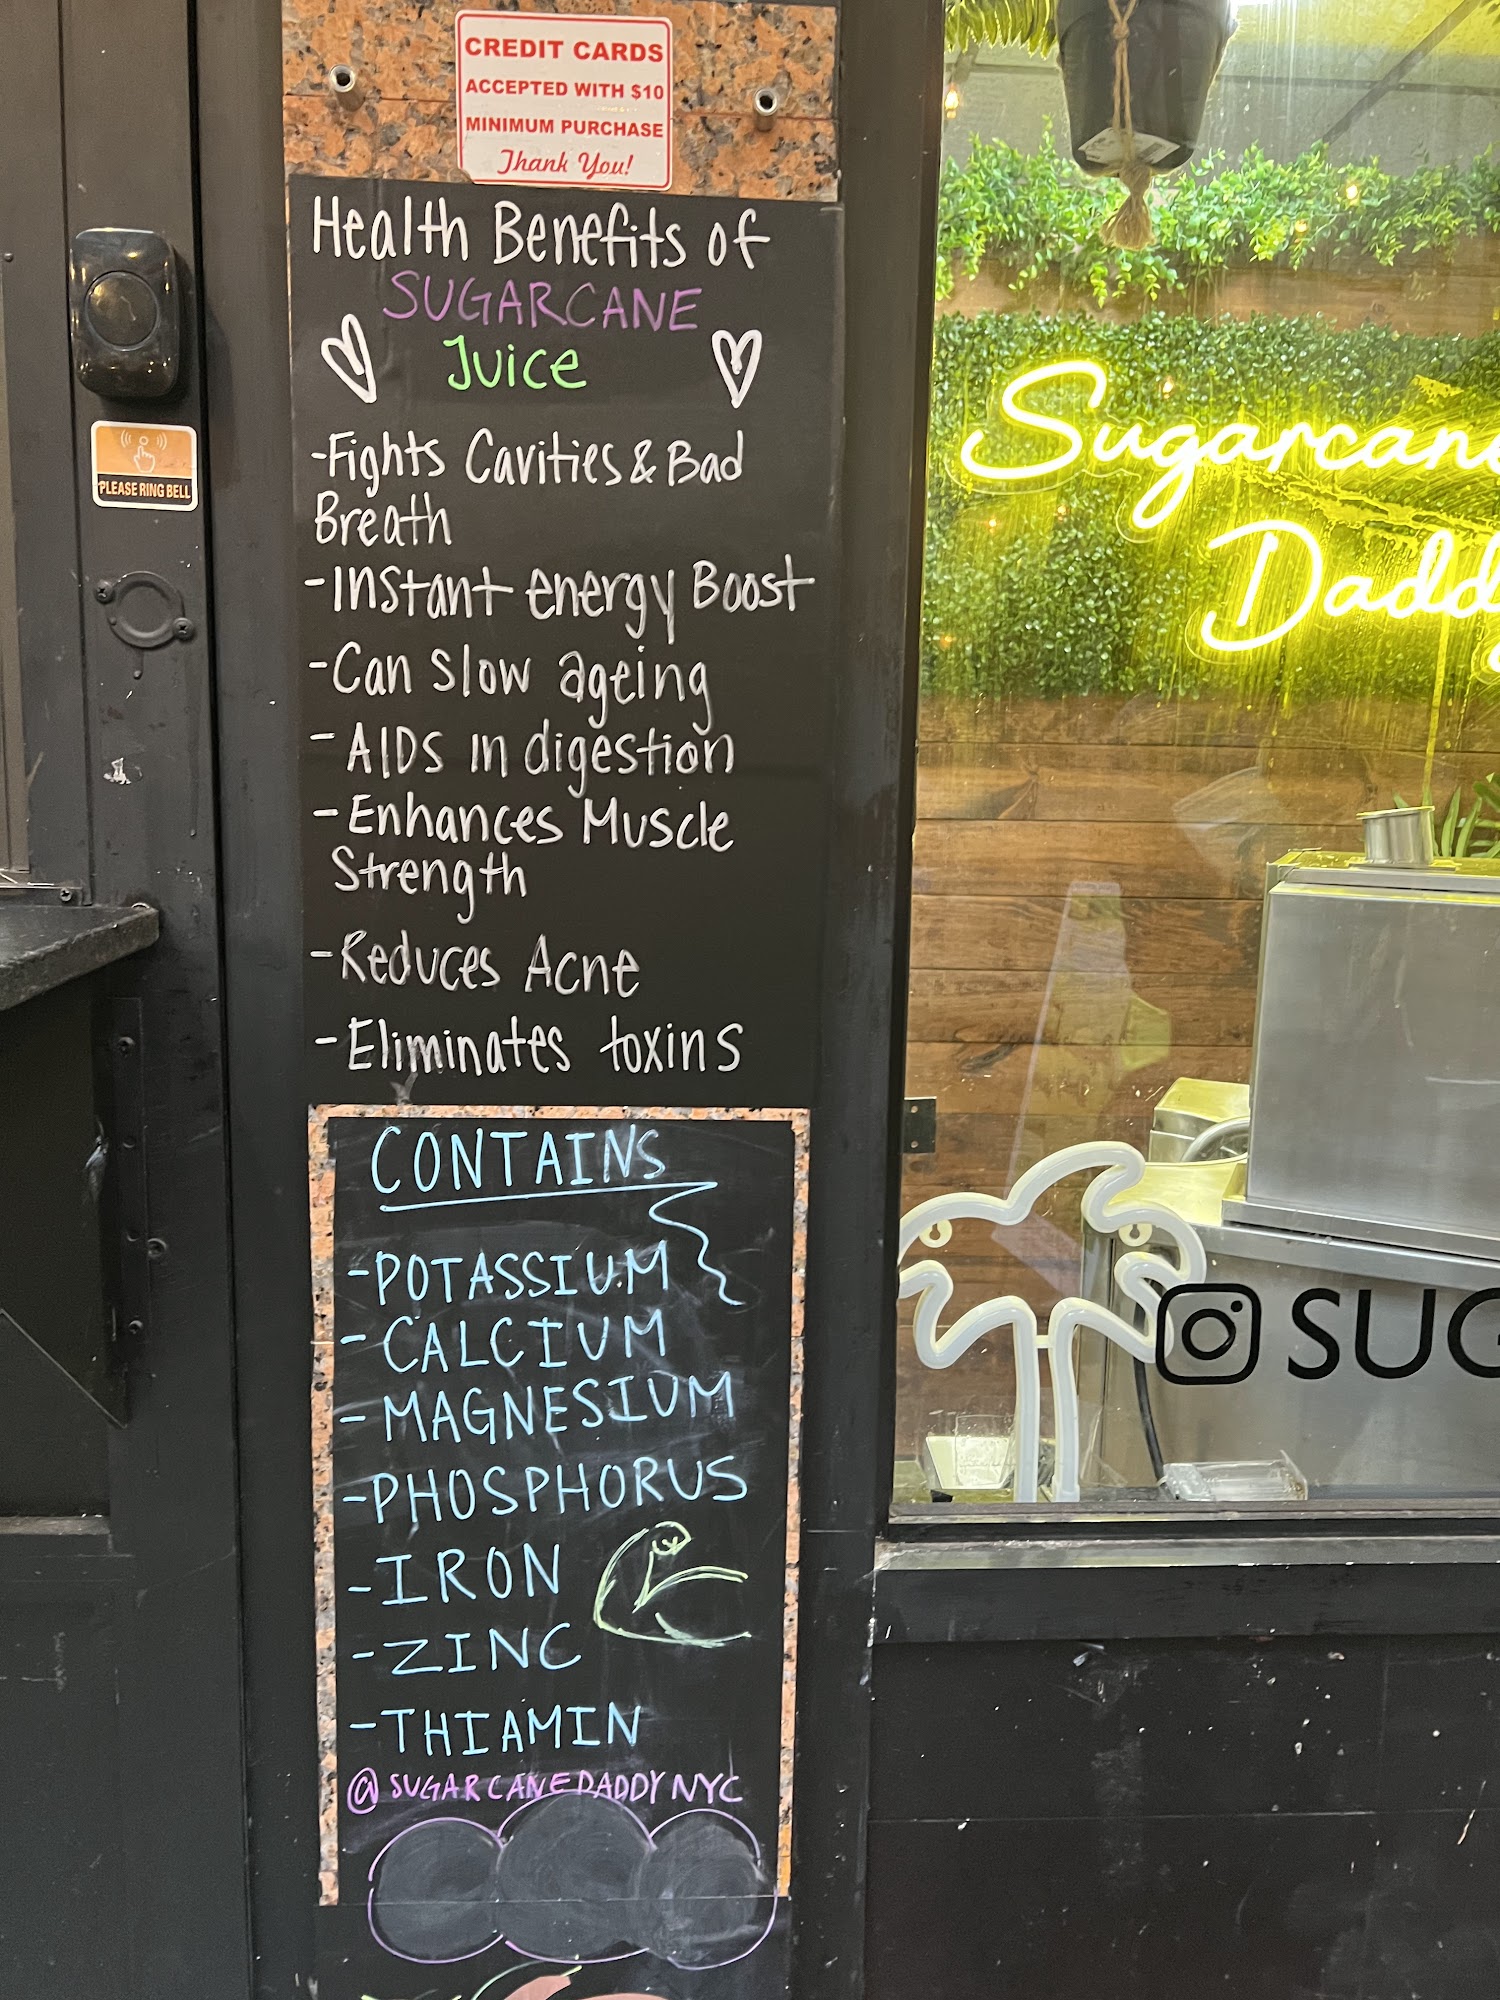 CREDIT CARDS
ACCEPTED WITH $10
MINIMUM PURCHASE
Thank You!
Health Benefits of
SUGARCANE
Juice
-Fights Cavities & Bad
Breath
-Instant energy Boost
-Can slow ageing
-AIDS in digestion
-Enhances Muscle
Strength
-Reduces Acne
-Eliminates toxins
CONTAINS
-POTASSIUM
-CALCIUM
-MAGNESIUM
-PHOSPHORUS
-IRON
-ZINC
-THIAMIN
@SUGARCANEDADDYNYC
PLEASE RING BELL
Sugarcane
Daddy
SUG